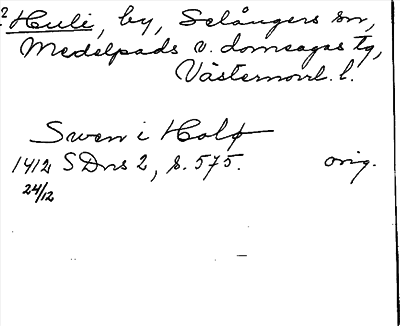 ? Huli, by, Selångers sn,
Medelpads v. domsagas tg,
Västernorrl. l.
Swen i Holp
1412 SDns 2, s. 575. orig.
24/12